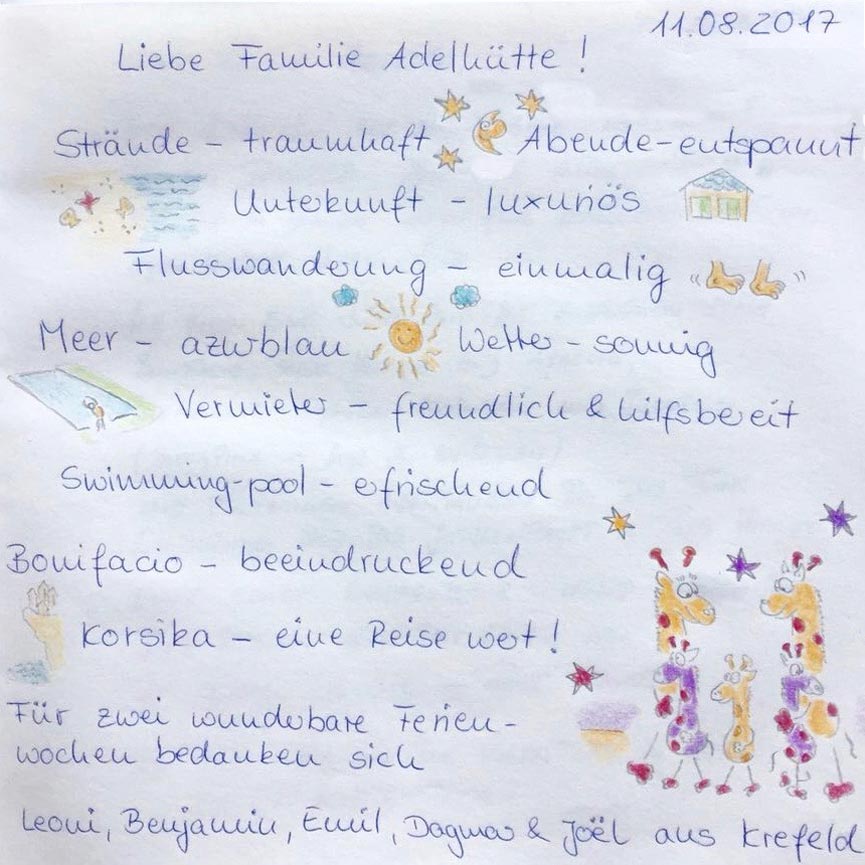 11.08.2017
Liebe Familie Adelhütte !
Strände - traumhaft Abende - entspannt
Unterkunft - luxuriös
Flusswanderung - einmalig
Meer - azurblau Wetter - sonnig
Vermieter - freundlich & hilfsbereit
Swimming-pool - erfrischend
Bonifacio - beeindruckend
Korsika - eine Reise wert !
Für zwei wunderbare Ferien-
wochen bedanken sich
Leoni, Benjamin, Emil, Dagmar & Joël aus Krefeld